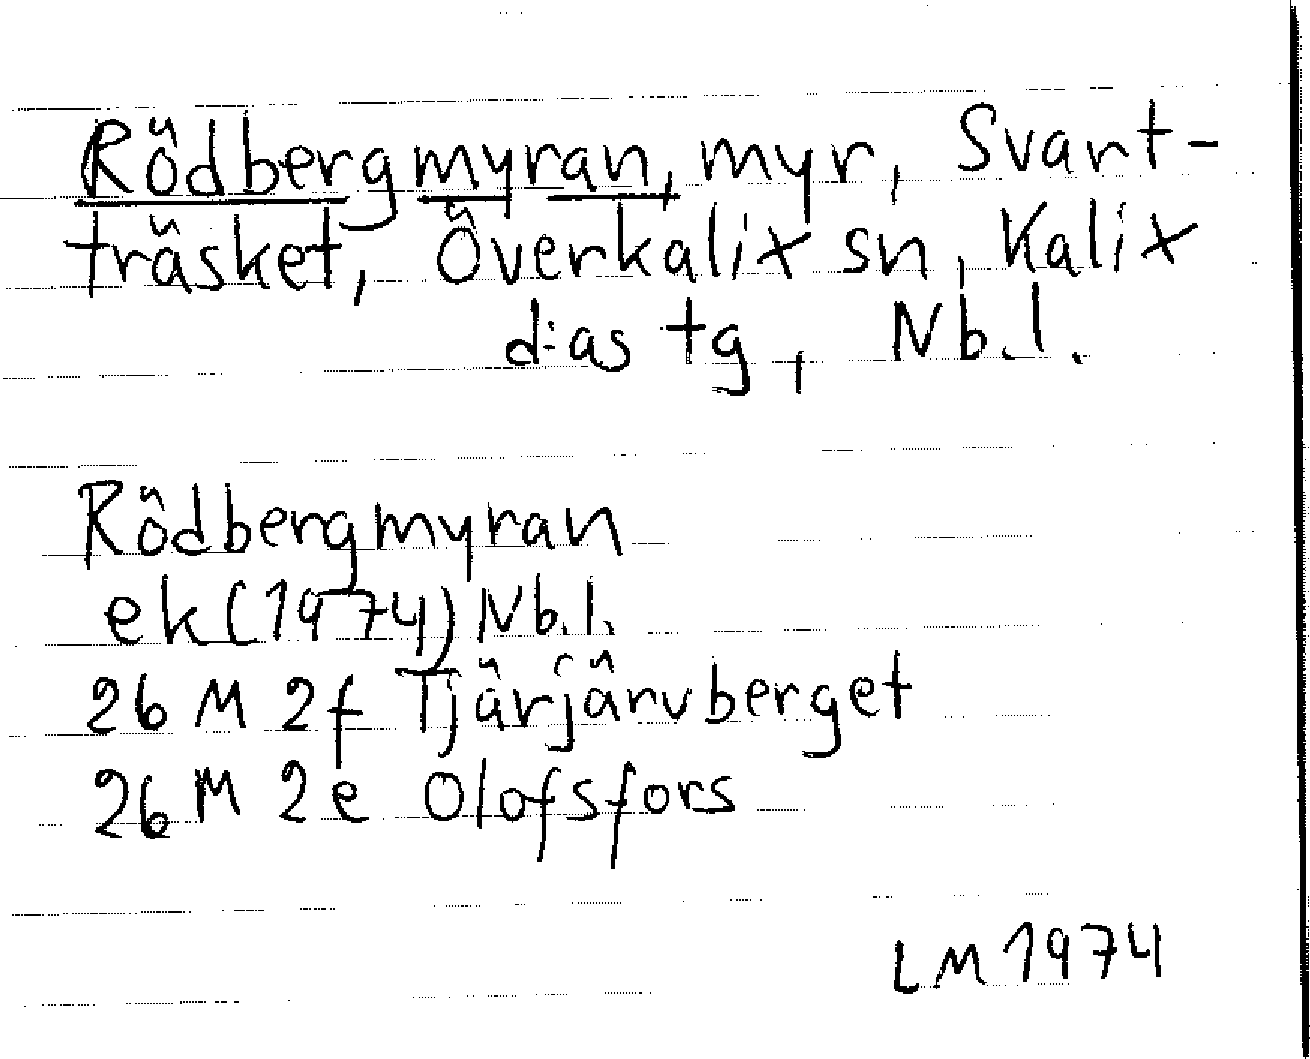 Rödbergmyran, myr, Svart-
träsket, Överkalix sn, Kalix
d:as tg, Nb.l.
Rödbergmyran
ek(1974) Nb.l.
26 M 2f Tjärjärvberget
26 M 2e Olofsfors
LM 1974